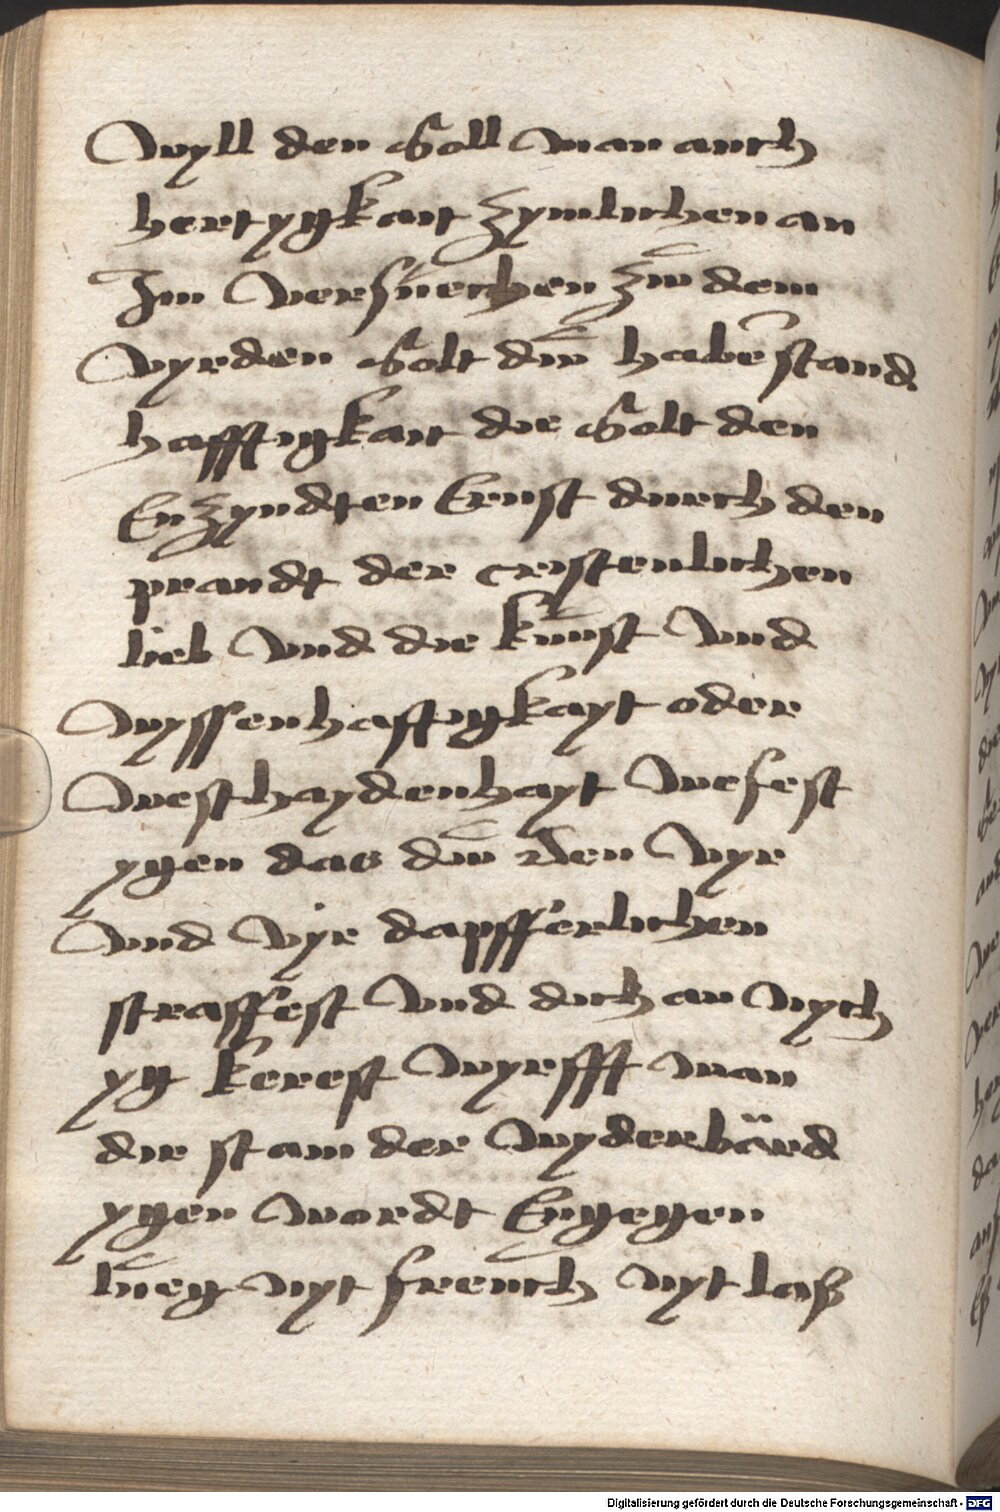 wyll den Soll man auch
hertygkait zymlichen an
Im versuechen zw dem
wyrden Solt dw habē stand
hafftigkait die Solt den
Enzyndten Ernst durch den
prandt der cristenlichen
lieb vnd die kunst vnd
wyssenhaftigkayt oder
westhaydenhayt wefest
ygen das dw den wyr
vnd vyr dapfferlichen
straffest vnd dich an nych
yg kerest wyrfft man
dir stain der wyderbärd
ygen wordt Engegen
lueg nyt freuch nyt laß
Digitalisierung gefördert durch die Deutsche Forschungsgemeinschaft - DFG